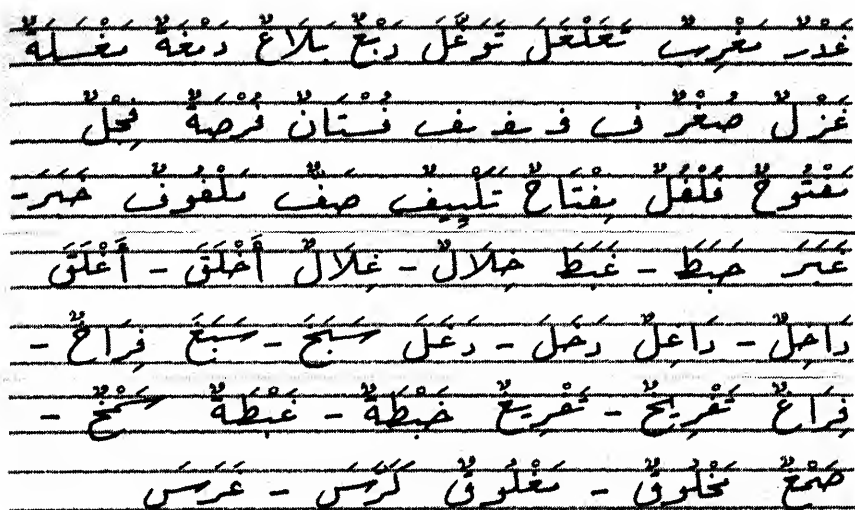 غَدْرٌ مَغْرِبٌ تَغَلْغَلَ تَوَغَّلَ دَبْغٌ بَلَاغٌ دَمْغَةٌ مَغْسَلَةٌ
غَزْلٌ صُغْرٌ ف ف ـفـ ـف فُسْتَانٌ فُرْصَةٌ فِجْلٌ
مَفْتُوحٌ فُلْفُلٌ مِفْتَاحٌ تَلْيِيفٌ صَفٌّ مَلْفُوفٌ خَبَرَ -
غَبَرَ خَبَطَ - غَبَطَ خِلَالٌ - غِلَالٌ أَخْلَقَ - أَغْلَقَ
دَاخِلٌ - دَاغِلٌ دَخَلَ - دَغَلَ سَبَخَ - سَبَغَ فِرَاخٌ -
فِرَاغٌ تَفْرِيخٌ - تَفْرِيغٌ خَبْطَةٌ - غَبْطَةٌ سَمْخٌ -
صَمْغٌ مَخْلُوقٌ - مَغْلُوقٌ خَرَسَ - غَرَسَ